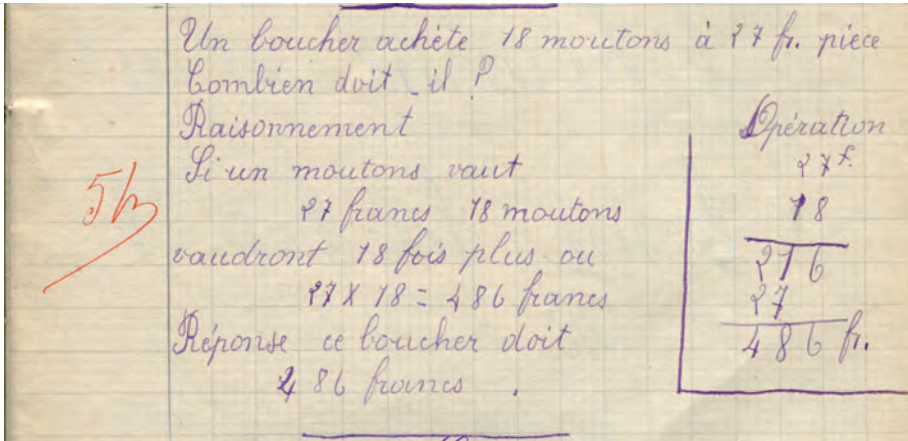 Un boucher achète 18 moutons à 27 fr. pièce
Combien doit-il ?
Raisonnement
Si un moutons vaut
27 francs 18 moutons
vaudront 18 fois plus ou
27 X 18 = 486 francs
Réponse ce boucher doit
486 francs.
Opération
27 f.
18
216
27
486 fr.